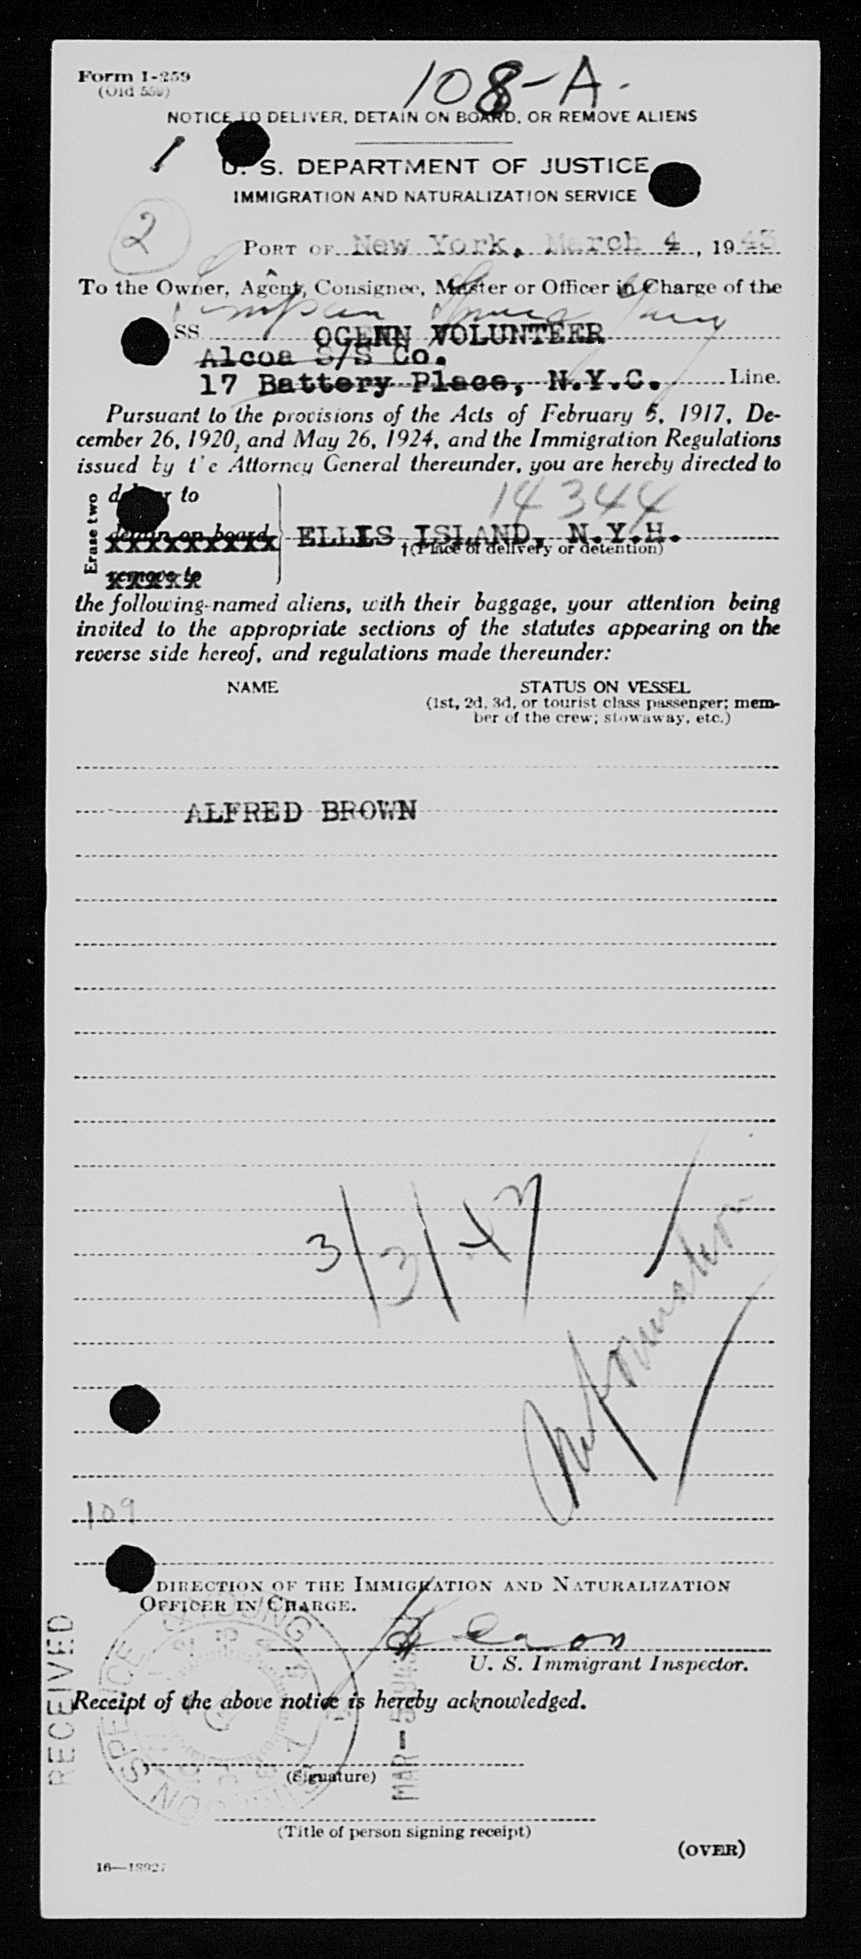 Form I-259
(Old 559)
108-A.
NOTICE TO DELIVER, DETAIN ON BOARD, OR REMOVE ALIENS
U. S. DEPARTMENT OF JUSTICE
IMMIGRATION AND NATURALIZATION SERVICE
2
PORT OF New York, March 4, 1943
To the Owner, Agent, Consignee, Master or Officer in Charge of the
SS OCENN VOLUNTEER
Alcoa S/S Co.
17 Battery Place, N.Y.C. Line.
Pursuant to the provisions of the Acts of February 5, 1917, De-
cember 26, 1920, and May 26, 1924, and the Immigration Regulations
issued by the Attorney General thereunder, you are hereby directed to
14344
Erase two
deliver to
detain on board
remove to
ELLIS ISLAND, N.Y.H.
†(Place of delivery or detention)
the following-named aliens, with their baggage, your attention being
invited to the appropriate sections of the statutes appearing on the
reverse side hereof, and regulations made thereunder:
NAME STATUS ON VESSEL
(1st, 2d, 3d, or tourist class passenger; mem-
ber of the crew; stowaway, etc.)
ALFRED BROWN
3/3/43
109
DIRECTION OF THE IMMIGRATION AND NATURALIZATION
OFFICER IN CHARGE.
U. S. Immigrant Inspector.
RECEIVED
Receipt of the above notice is hereby acknowledged.
MAR - 5
(Signature)
(Title of person signing receipt)
(OVER)
16—18927